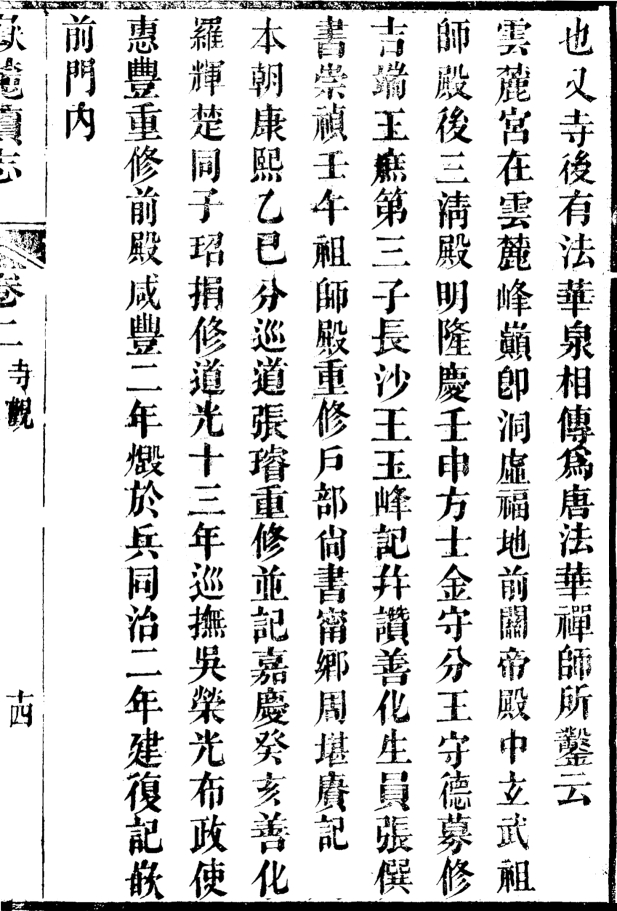 也又寺後有法華泉相傳爲唐法華禪師所鑿云
雲麓宮在雲麓峰巓卽洞虛福地前關帝殿中玄武祖
師殿後三淸殿明隆慶壬申方士金守分王守德募修
吉端王庶第三子長沙王玉峰記幷讚善化生員張僎
書崇禎壬午祖師殿重修戶部尙書甯鄕周堪賡記
本朝康熙乙巳分巡道張璿重修並記嘉慶癸亥善化
羅輝楚同子玿捐修道光十三年巡撫吳榮光布政使
惠豐重修前殿咸豐二年燬於兵同治二年建復記嵌
前門內
嶽麓續志 卷二 寺觀 十四